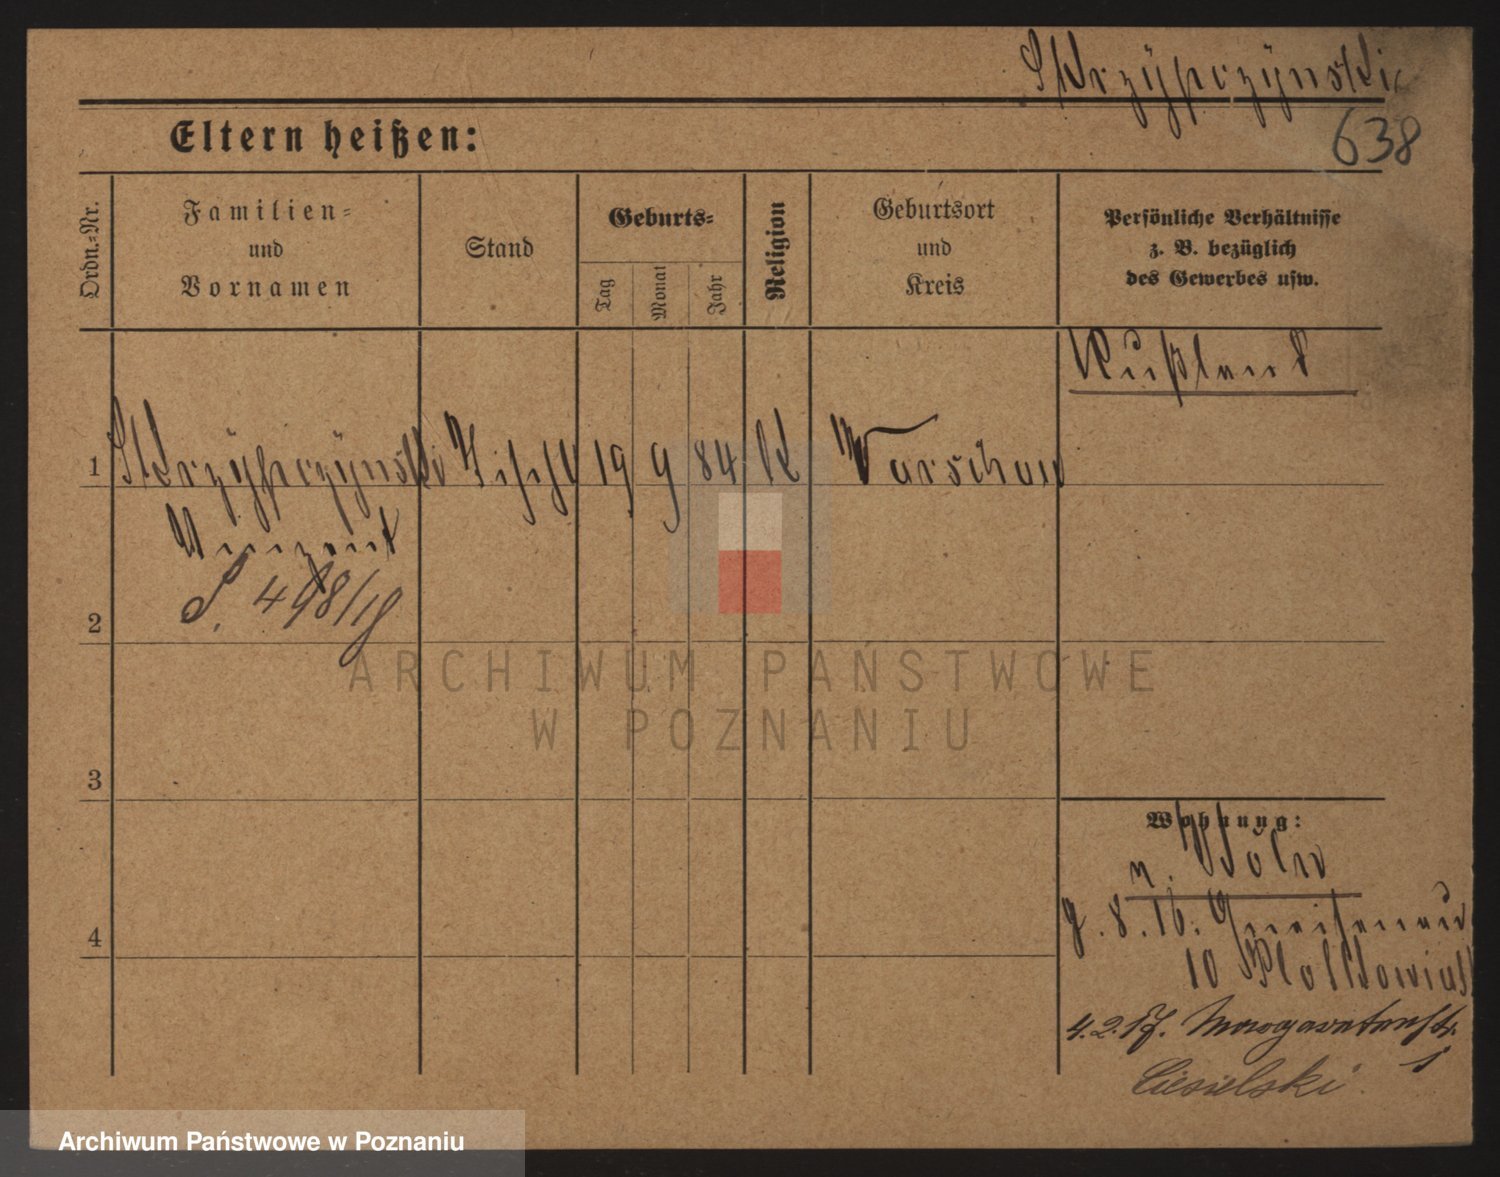 Skrzÿpczÿnski
638
Eltern heißen:
Ordn.=Nr.
Familien=
und
Vornamen
Stand
Geburts=
Tag
Monat
Jahr
Religion
Geburtsort
und
Kreis
Persönliche Verhältnisse
z. B. bezüglich
des Gewerbes usw.
Rußland
1 Skrzÿpczÿnski Tischl 19 9 84 K Warschau
Vinzent
S. 498/19
2
3
4
Wohnung:
n. Köln
8.16. Gneisenau
10
4.2.17. Margaretenstr.
1
Ciesielski
ARCHIWUM PAŃSTWOWE
W POZNANIU
Archiwum Państwowe w Poznaniu